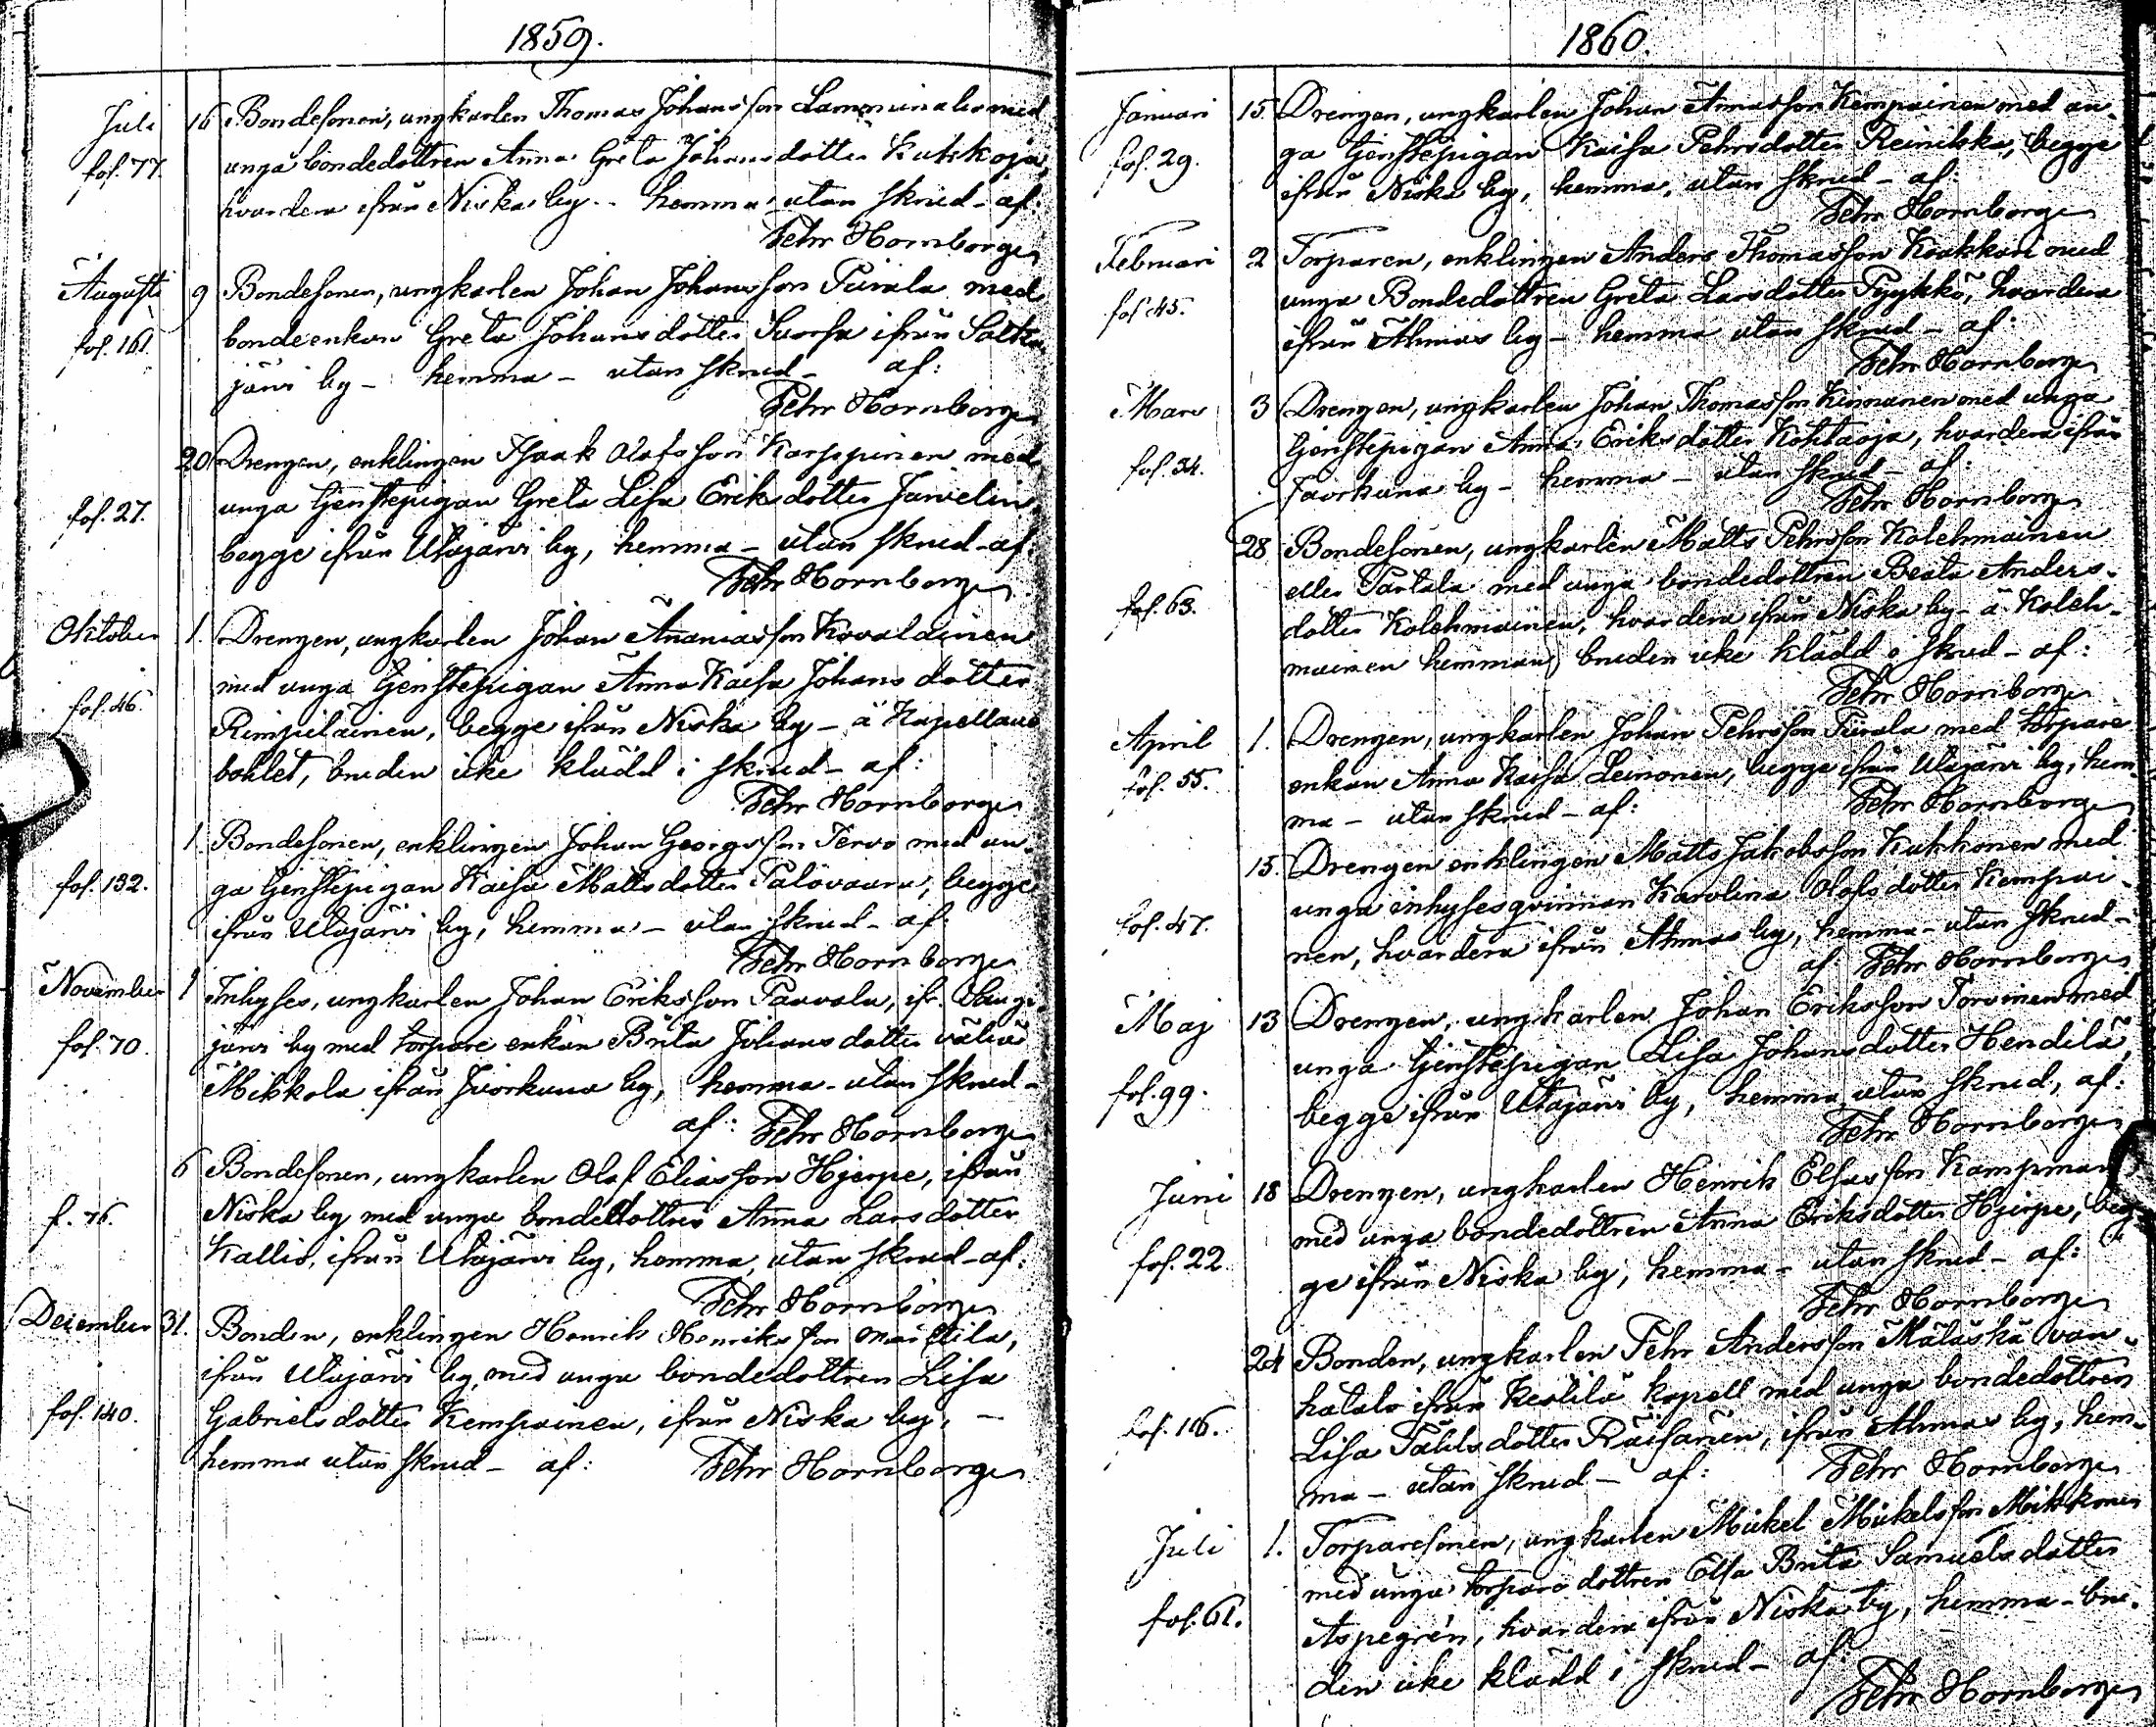 1859.
Juli 16 Bondesonen, ungkarlen Thomas Johansson Lamminaho med
fol. 77. unga bondedottren Anna Greta Johansdotter Kukkoja,
hvardera ifrån Niska by - hemma utan skrud - af:
Pehr Hornborg
Augusti 9 Bondesonen, ungkarlen Johan Johansson Piirala med
fol. 161. bondeenkan Greta Johansdotter Suorsa ifrån Sotka-
järvi by - hemma - utan skrud - af:
Pehr Hornborg
20. Drengen, enklingen Isaak Olofsson Karppinen med
fol. 27. unga tjenstepigan Greta Lisa Eriksdotter Jurvelin,
begge ifrån Utajärvi by, hemma - utan skrud - af:
Pehr Hornborg
Oktober 1. Drengen, ungkarlen Johan Ananiasson Kovalainen
med unga tjenstepigan Anna Kaisa Johansdotter
fol. 46. Rimpiläinen, begge ifrån Niska by - å Kapellans
bohlet, bruden icke klädd i skrud - af:
Pehr Hornborg
1. Bondesonen, enklingen Johan Georgsson Tervo med un-
fol. 132. ga tjenstepigan Kaisa Mattsdotter Palovaara, begge
ifrån Utajärvi by, hemma - utan skrud - af:
Pehr Hornborg
November 1 Inhyses, ungkarlen Johan Eriksson Paavola, ifr.
fol. 70. järvi by med torpare enkan Brita Johansdotter
Mikkola ifrån Juorkuna by, hemma - utan skrud -
af: Pehr Hornborg
6 Bondesonen, ungkarlen Olof Eliasson Hjerpe, ifrån
f. 76. Niska by med unga bondedottren Anna Larsdotter
Kallio, ifrån Utajärvi by, hemma, utan skrud - af:
Pehr Hornborg
December 31. Bonden, enklingen Henrik Henriksson
ifrån Utajärvi by, med unga bondedottren Lisa
fol. 140. Gabrielsdotter Kempainen, ifrån Niska by, -
hemma utan skrud - af: Pehr Hornborg
1860.
Januari 15. Drengen, ungkarlen Johan Kempainen med un-
fol. 29. ga tjenstepigan Kaisa Pehrsdotter Reinikka, begge
ifrån Niska by, hemma, utan skrud - af:
Pehr Hornborg
Februari 2 Torparen, enklingen Anders Thomasson med
fol. 45. unga Bondedottren Greta Larsdotter Pyykkö, hvardera
ifrån Ahmas by - hemma utan skrud - af:
Pehr Hornborg
Mars 3 Drengen, ungkarlen Johan Thomasson Kinnanen med unga
fol. 34. tjenstepigan Anna Eriksdotter Kohtaoja, hvardera ifrån
Juorkuna by - hemma - utan skrud - af:
Pehr Hornborg
28 Bondesonen, ungkarlen Matts Pehrsson Kolehmainen
eller Partala med unga bondedottren Beata Anders-
fol. 63. dotter Kolehmainen, hvardera ifrån Niska by - å Koleh-
mainen hemman, bruden icke klädd i skrud - af:
Pehr Hornborg
April 1. Drengen, ungkarlen Johan Pehrsson Piirala med torpare
fol. 55. enkan Anna Kaisa Leinonen, begge ifrån Utajärvi by, hem-
ma - utan skrud - af: Pehr Hornborg
15. Drengen enklingen Matts Jakobsson Kukkonen med
unga inhysesqvinnan Karolina Olofsdotter Kempai-
fol. 47. nen, hvardera ifrån Ahmas by, hemma - utan skrud -
af: Pehr Hornborg
Maj 13 Drengen, ungkarlen Johan Eriksson Torvinen med
unga tjenstepigan Lisa Johansdotter Hendilä,
fol. 99. begge ifrån Utajärvi by, hemma, utan skrud, af:
Pehr Hornborg
Juni 18 Drengen, ungkarlen Henrik Kampman
med unga bondedottren Anna Eriksdotter Hjerpe, beg-
fol. 22. ge ifrån Niska by, hemma - utan skrud - af:
Pehr Hornborg
24 Bonden, ungkarlen Pehr Andersson Mäläskä van-
hatalo ifrån Kestilä kapell med unga bondedottren
fol. 116. Lisa Påhlsdotter Räisänen, ifrån Ahmas by, hem-
ma - utan skrud - af: Pehr Hornborg
Juli 1. Torparesonen, ungkarlen Mickel Mickelsson Mikkonen
med unga torpare dottren Elsa Brita Samuelsdotter
fol. 61. Aspegrén, hvardera ifrån Niska by, hemma - bru-
den icke klädd i skrud - af:
Pehr Hornborg